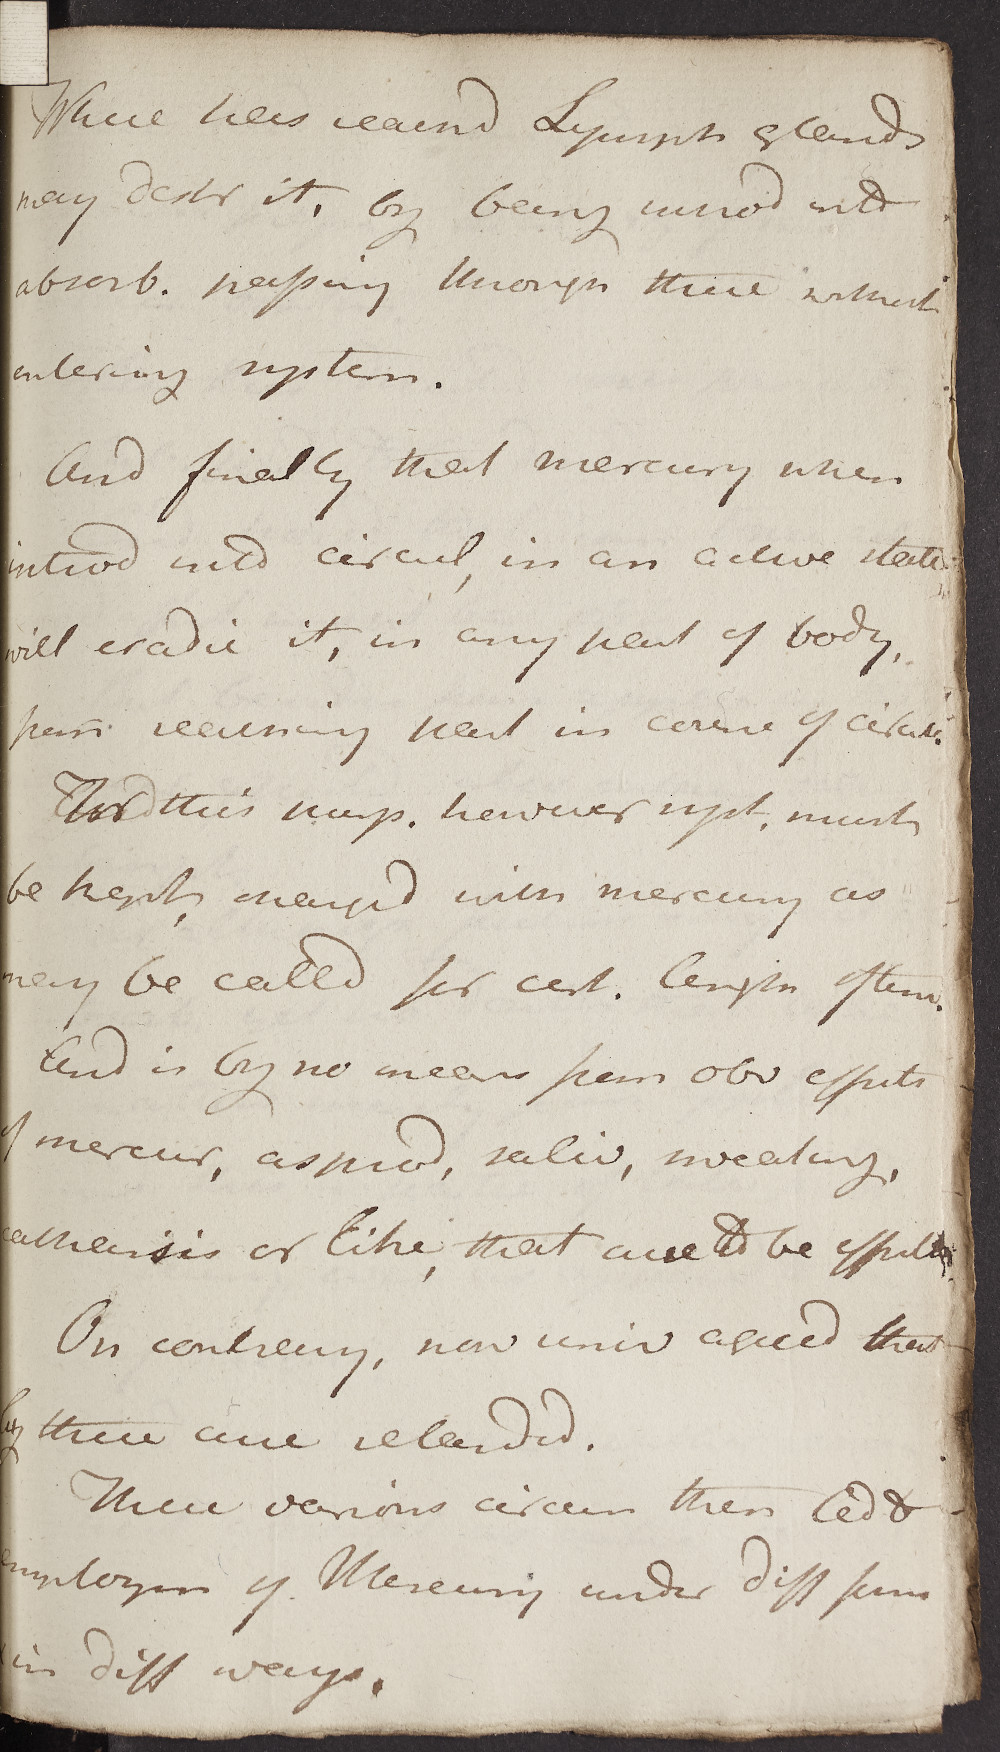 Where has reachd Lymph glands
may destr it, by being introd into
absorb. passing through these without
entering system.
And finally that mercury when
introd into circul, in an active state
will eradic it, in any part of body,
from receiving part in course of circul.
For this purp. however syst. must
be kept, chargd with mercury as
may be called for cert. length of time.
And is by no means from obv effects
of mercur, as prod, saliv, sweating,
catharsis or like, that cure to be effectd
On contrary, now univ agreed that
by these cure retarded.
These various circum then led to
employm of Mercury under diff forms
in diff ways.